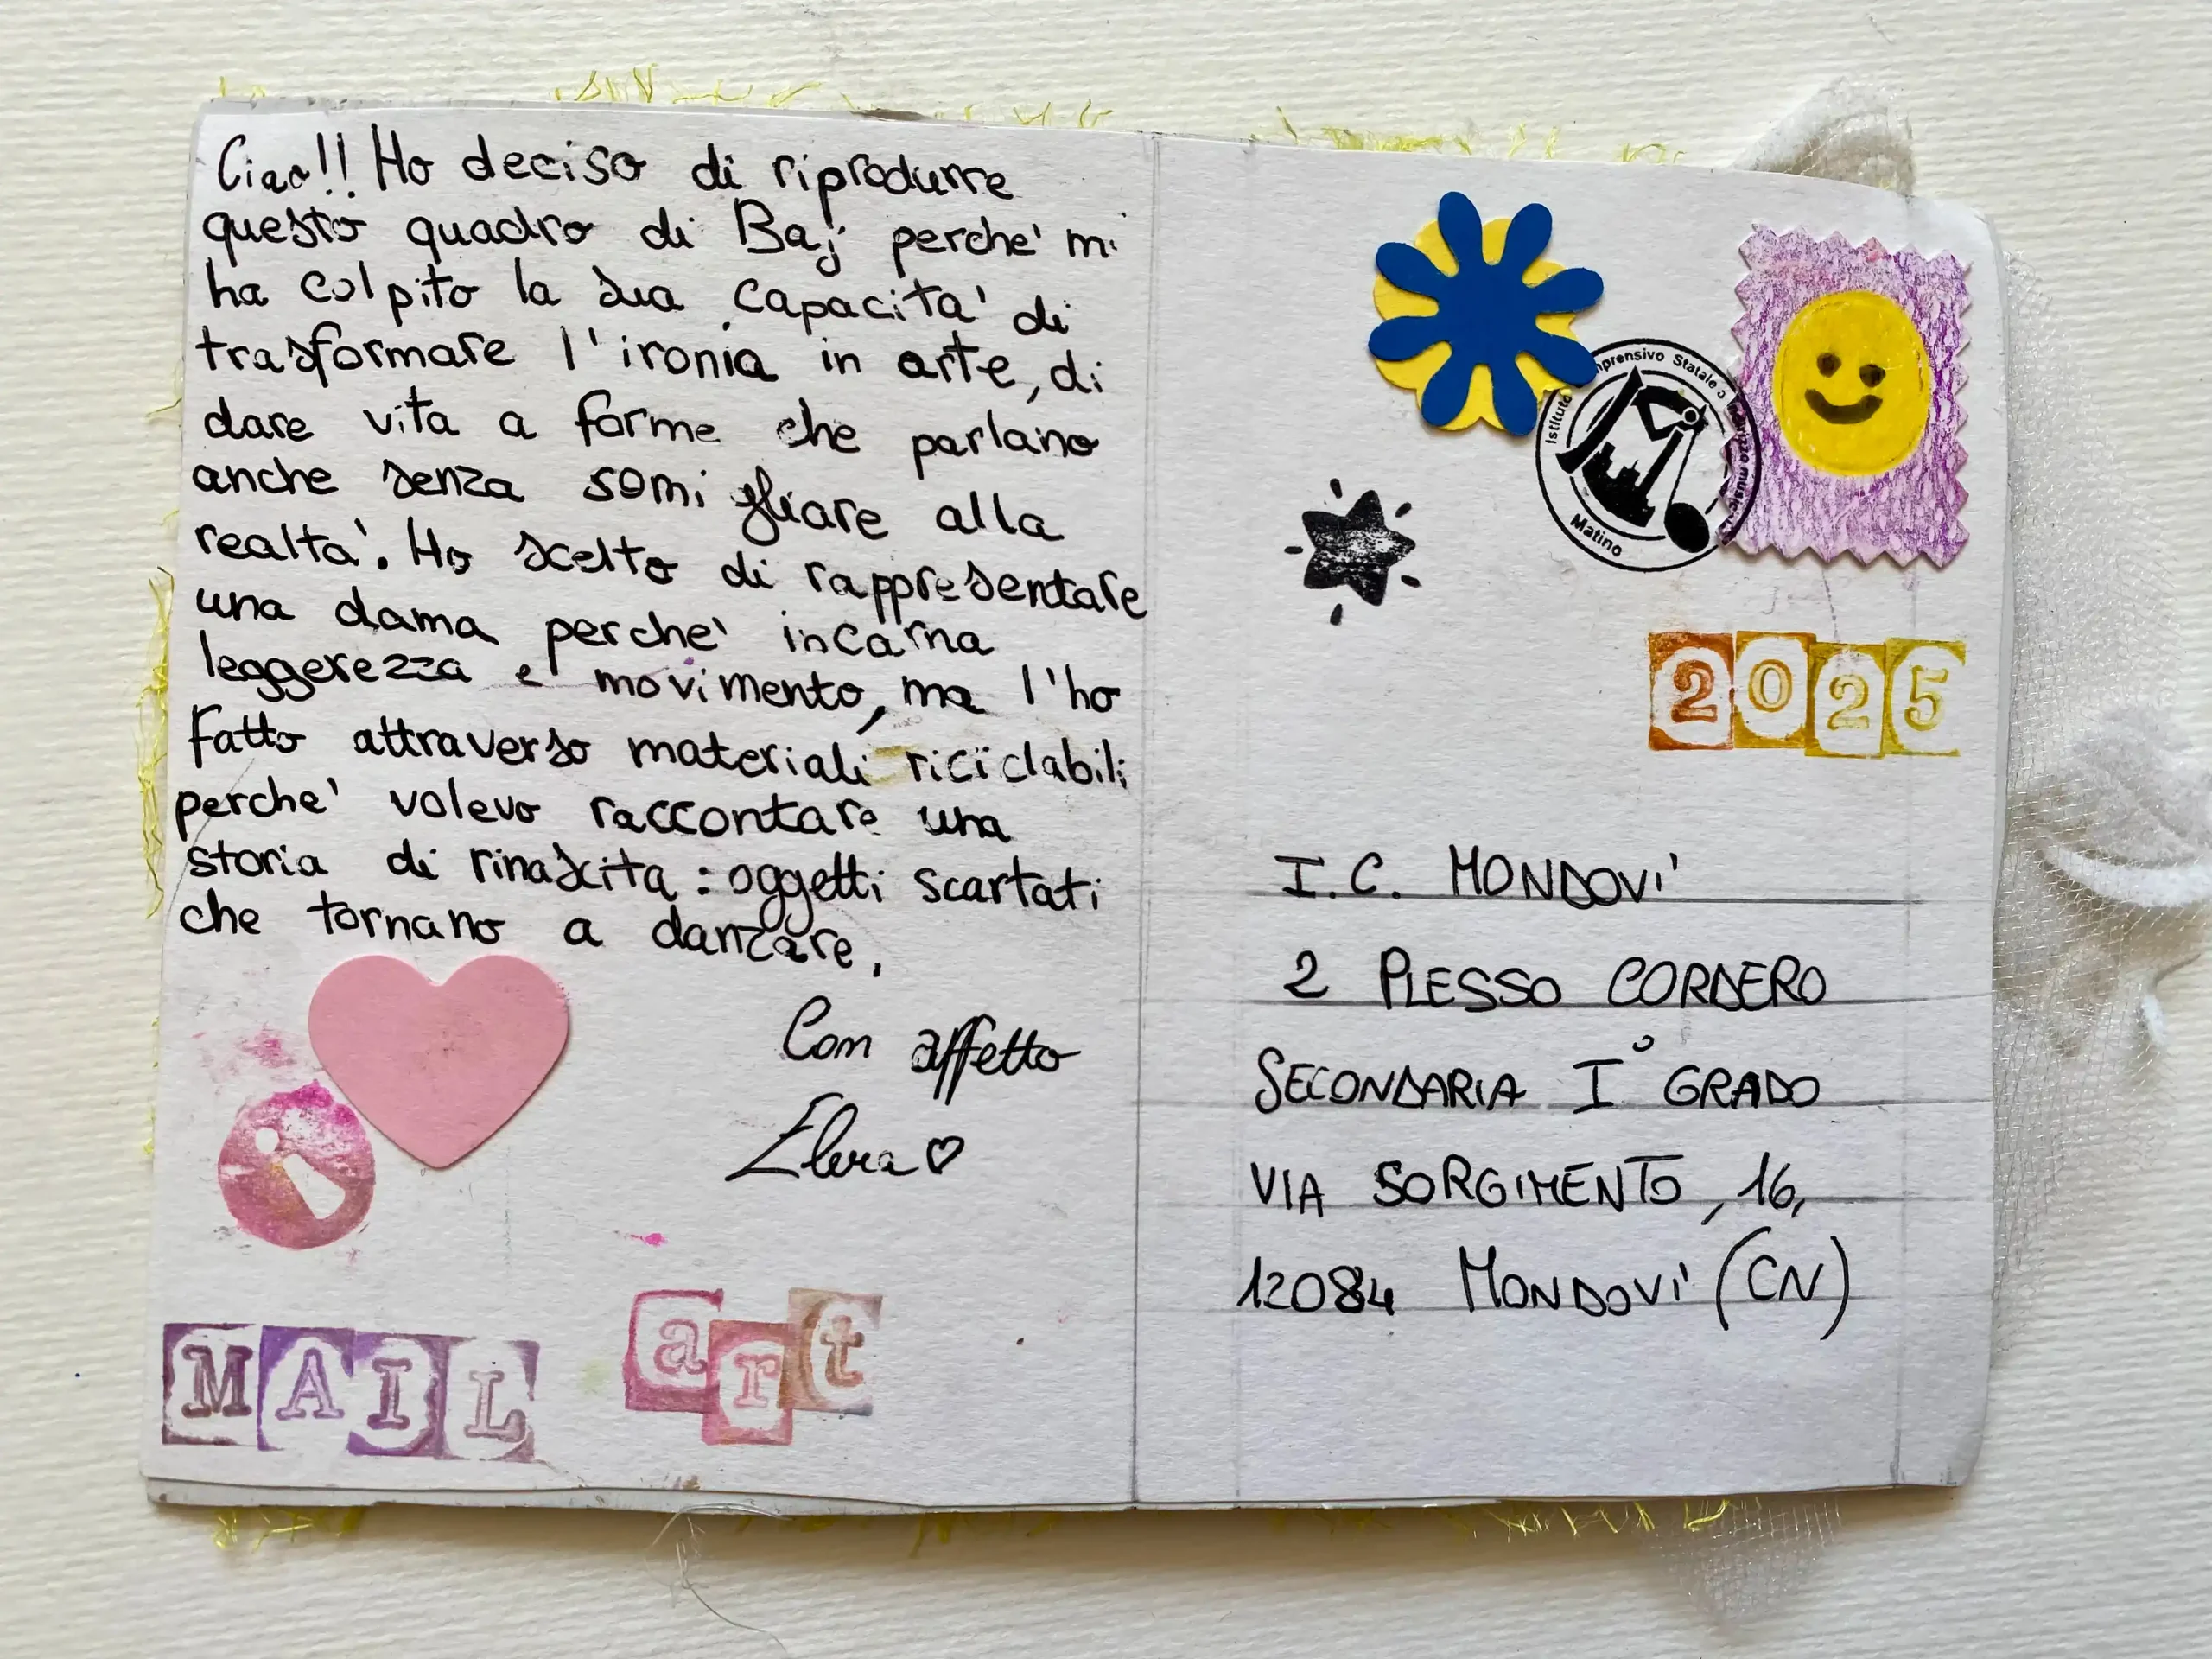 Ciao!! Ho deciso di riprodurre
questo quadro di Baj perche' mi
ha colpito la sua capacita' di
trasformare l'ironia in arte, di
dare vita a forme che parlano
anche senza somigliare alla
realta'. Ho scelto di rappresentare
una dama perche' incarna
leggerezza e movimento, ma l'ho
fatto attraverso materiali riciclabili
perche' volevo raccontare una
storia di rinascita: oggetti scartati
che tornano a danzare.
Con affetto
MAIL art
Istituto Comprensivo Statale
Matino
2025
I.C. MONDOVI'
2 PLESSO CORDERO
SECONDARIA I° GRADO
VIA SORGIMENTO, 16,
12084 MONDOVI' (CN)